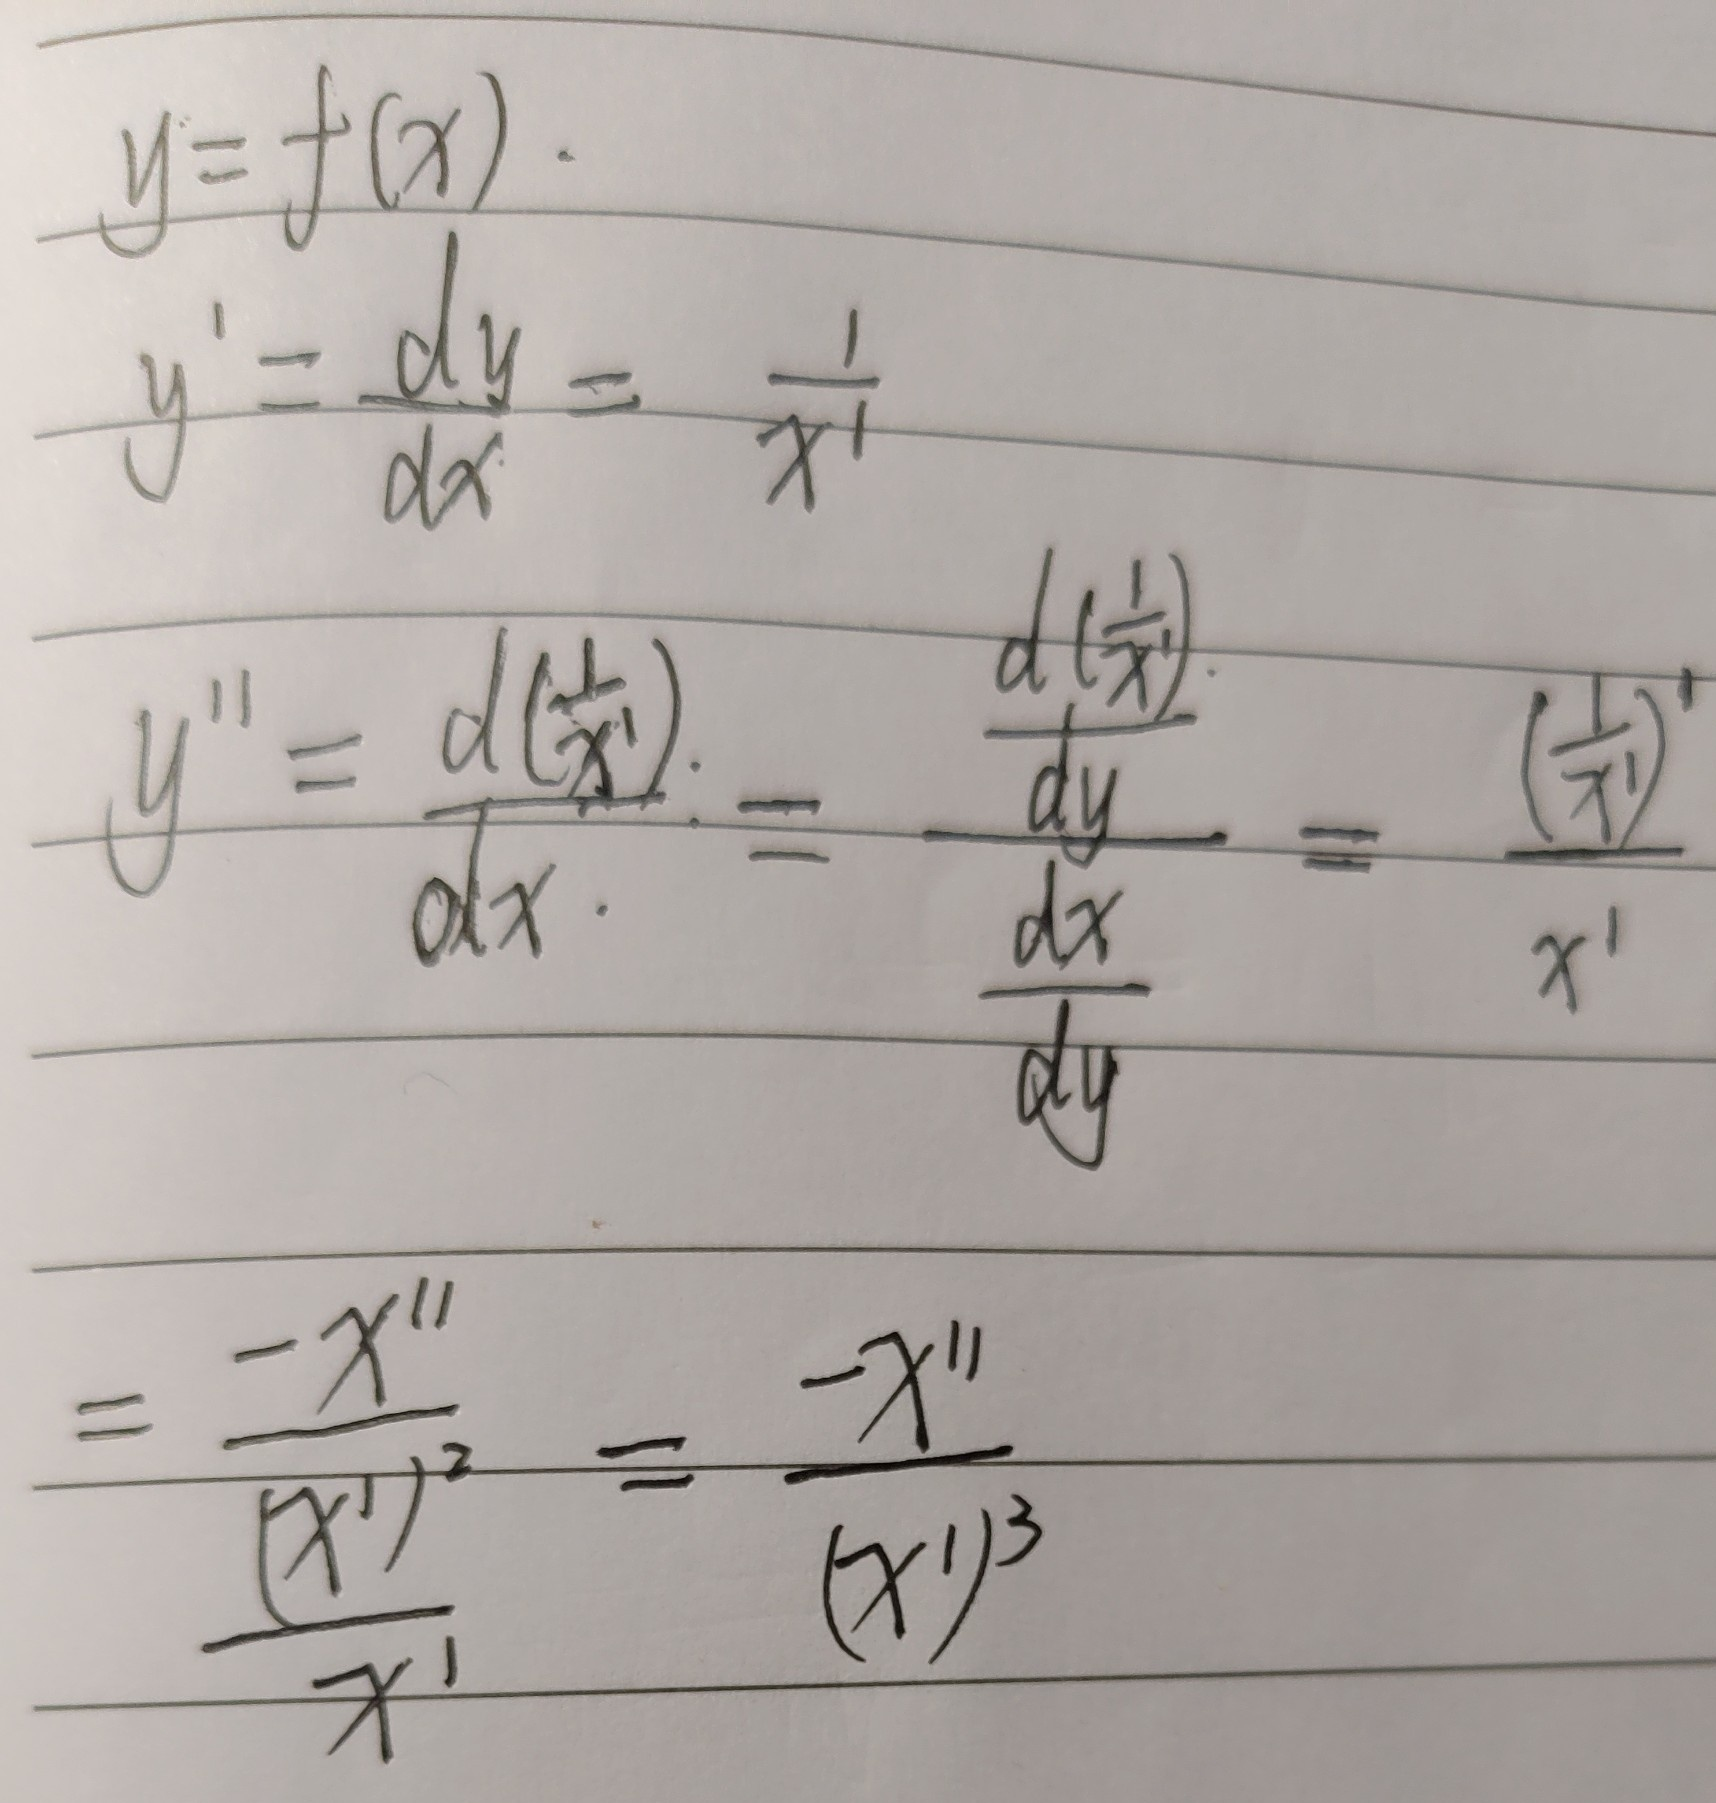 y = f(x).
y' = dy/dx = 1/x'
y'' = d(1/x')/dx = (d(1/x')/dy)/(dx/dy) = (1/x')'/x'
= (-x''/(x')²)/x' = -x''/(x')³